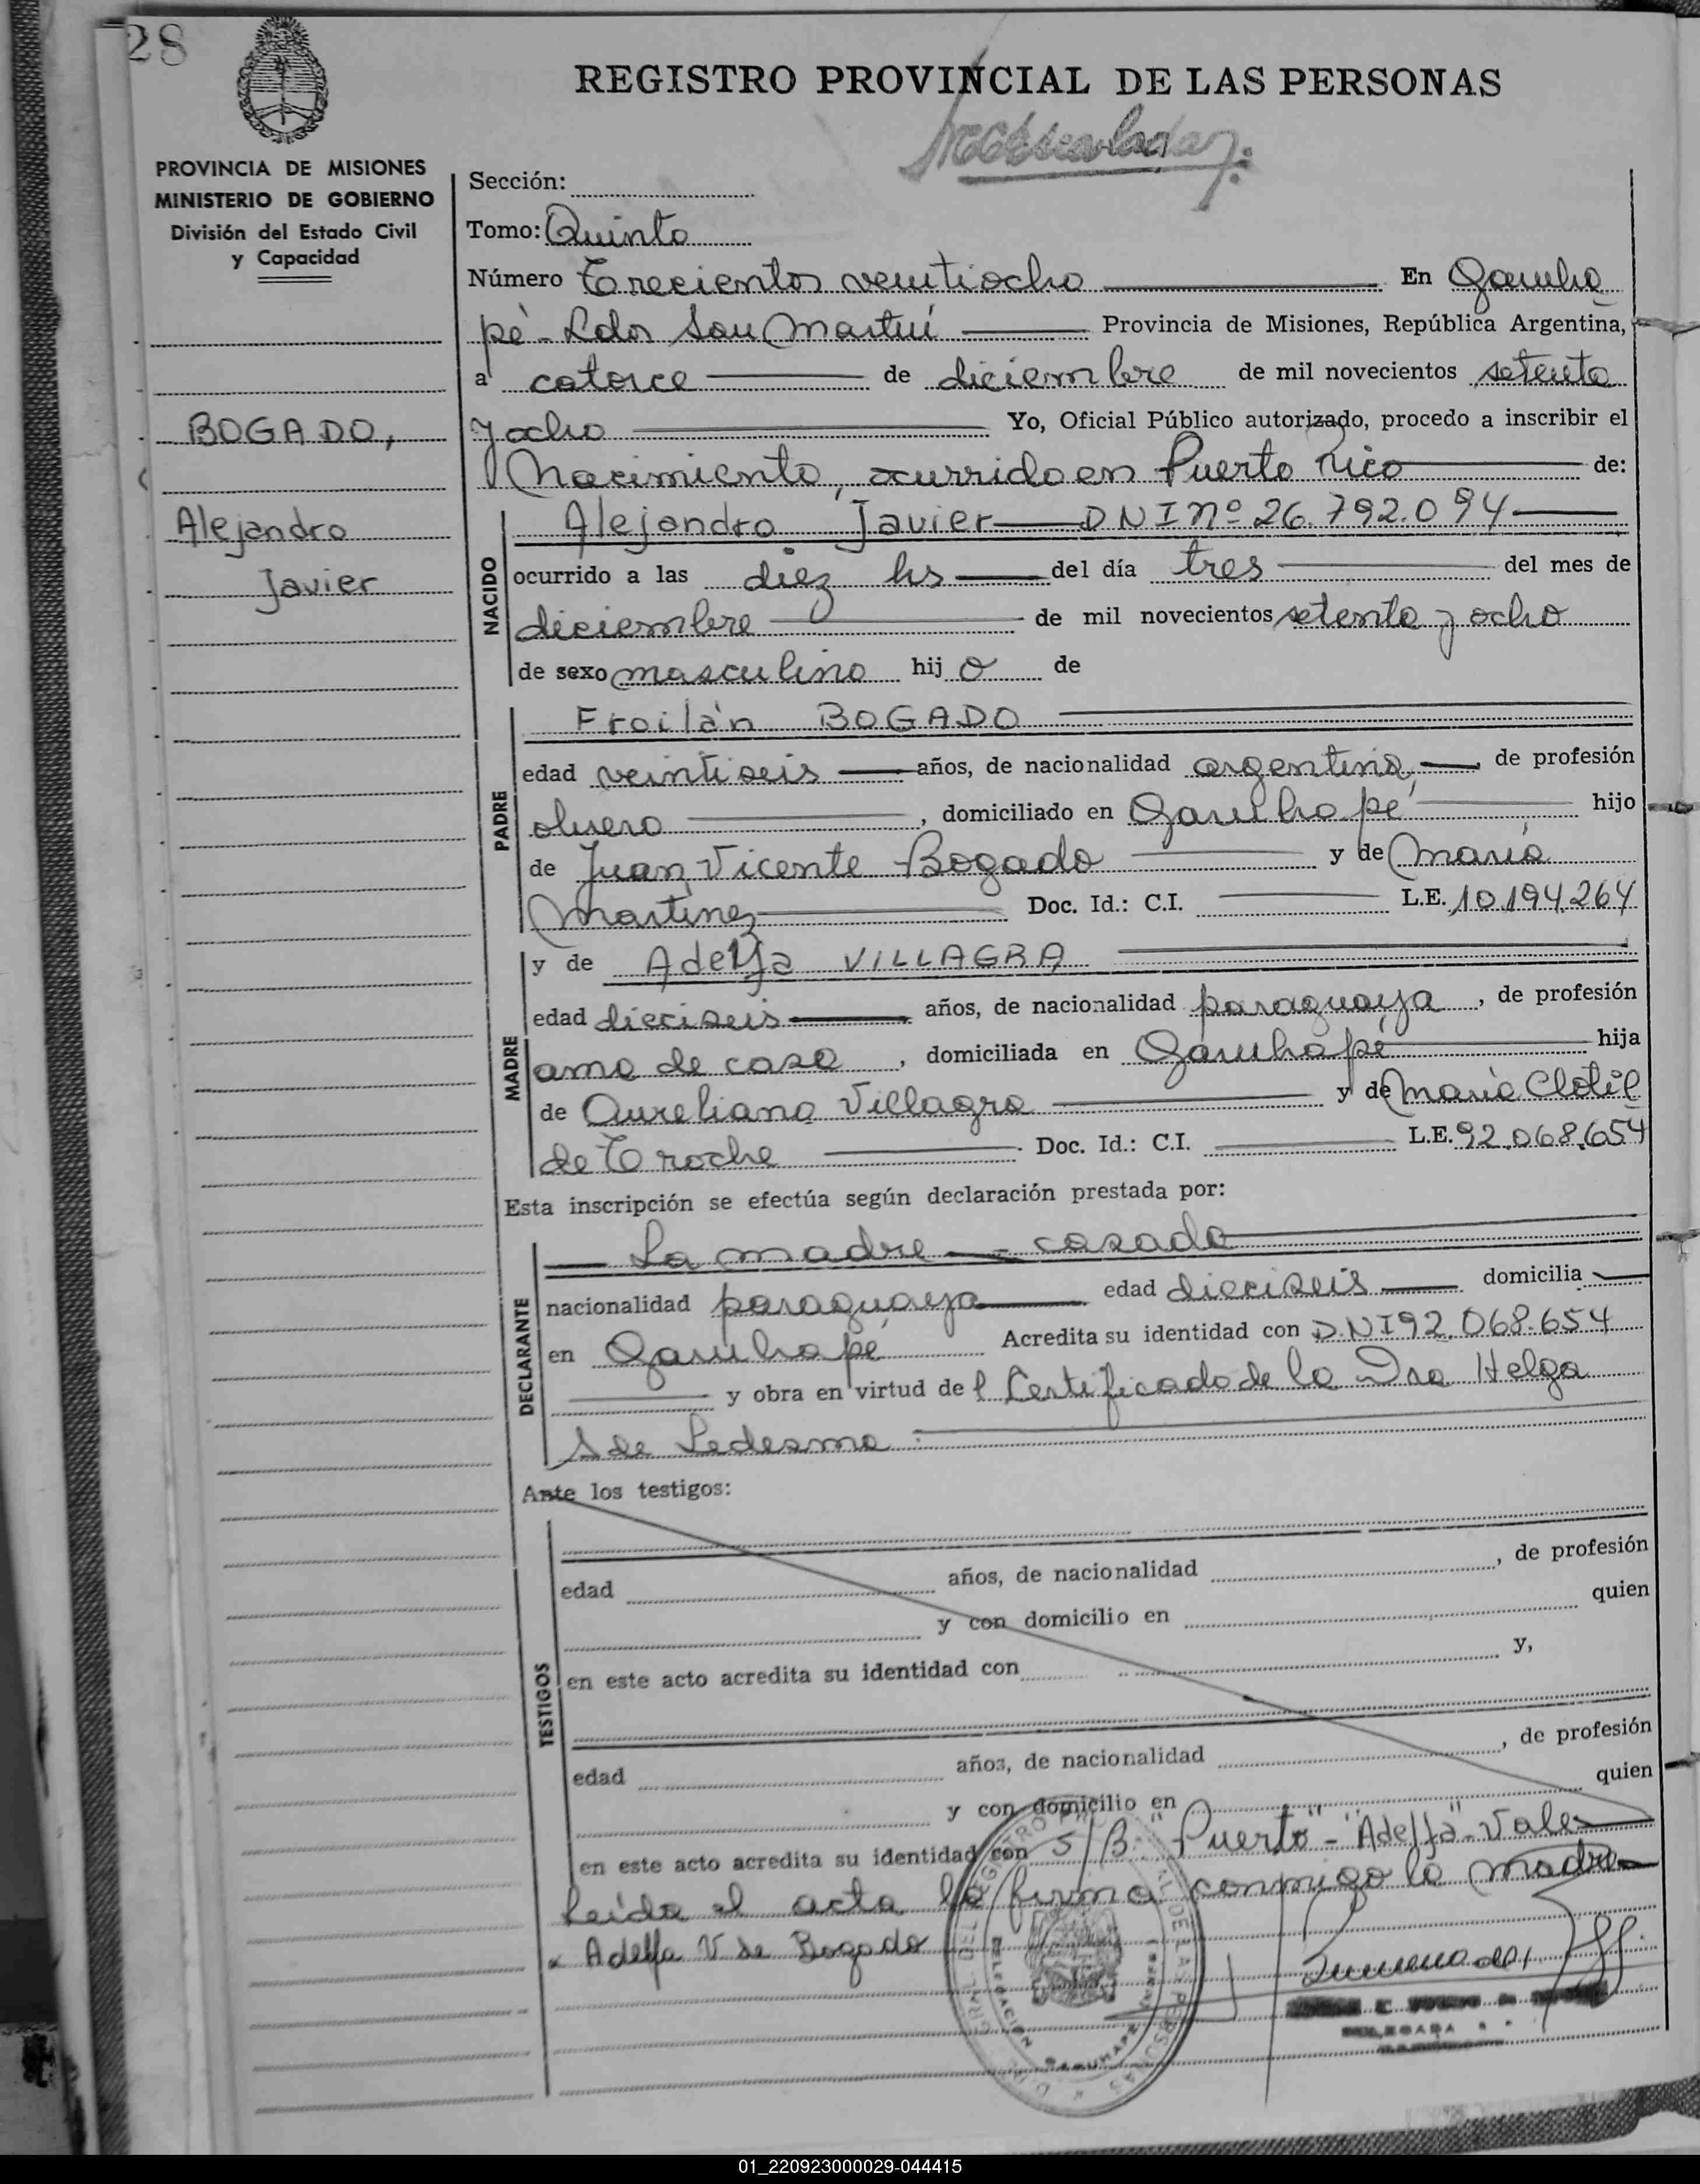 28
REGISTRO PROVINCIAL DE LAS PERSONAS
PROVINCIA DE MISIONES
MINISTERIO DE GOBIERNO
División del Estado Civil
y Capacidad
BOGADO,
Alejandro
Javier
Sección:
Tomo: Quinto
Número Trecientos veintiocho En Garuha
pé - Ldor San Martin Provincia de Misiones, República Argentina,
a catorce de diciembre de mil novecientos setenta
y ocho Yo, Oficial Público autorizado, procedo a inscribir el
Nacimiento, ocurrido en Puerto Rico de:
NACIDO
Alejandro Javier DNI nº 26.792.094
ocurrido a las diez hs del día tres del mes de
diciembre de mil novecientos setenta y ocho
de sexo masculino hij o de
PADRE
Froilán BOGADO
edad veintiseis años, de nacionalidad argentina, de profesión
obrero, domiciliado en Garuhapé hijo
de Juan Vicente Bogado y de María
Martinez Doc. Id.: C.I. L.E. 10.194.264
MADRE
y de Adelfa VILLAGRA
edad dieciseis años, de nacionalidad paraguaya, de profesión
ama de casa, domiciliada en Garuhapé hija
de Aureliano Villagra y de María Clotil
de Troche Doc. Id.: C.I. L.E. 92.068.654
Esta inscripción se efectúa según declaración prestada por:
DECLARANTE
La madre — casada
nacionalidad paraguaya edad dieciseis domicilia
en Garuhapé Acredita su identidad con D.N.I 92.068.654
y obra en virtud de l Certificado de la Dra Helga
S de Ledesma.
Ante los testigos:
TESTIGOS
edad años, de nacionalidad , de profesión
y con domicilio en quien
en este acto acredita su identidad con y,
edad años, de nacionalidad , de profesión
y con domicilio en quien
en este acto acredita su identidad con S/B: "Puerto" - "Adelfa" - Vale
Leida el acta la firma conmigo la madre
x Adelfa V de Bogado
DELEGADA
01_220923000029-044415